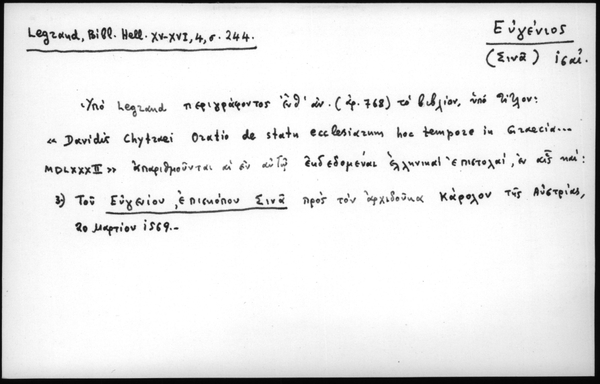 Legrand, Bibl. Hell. XV-XVI, 4, σ. 244.
Εὐγένιος
(Σινᾶ) ἱσαί.
Ὑπό Legrand περιγράφοντος ἐνθ' ἀν. (ἀρ. 768) τό βιβλίον, ὑπό τίτλον:
« Davidis Chytraei Oratio de statu ecclesiarum hoc tempore in Graecia...
MDLXXXIII » ἀπαριθμοῦνται αἱ ἐν αὐτῷ ἐκδεδομέναι ἑλληνικαί ἐπιστολαί, ἐν αἷς καί:
3) Τοῦ Εὐγενίου, ἐπισκόπου Σινᾶ πρός τόν ἀρχιδοῦκα Κάρολον τῆς Αὐστρίας,
20 Μαρτίου 1569.-